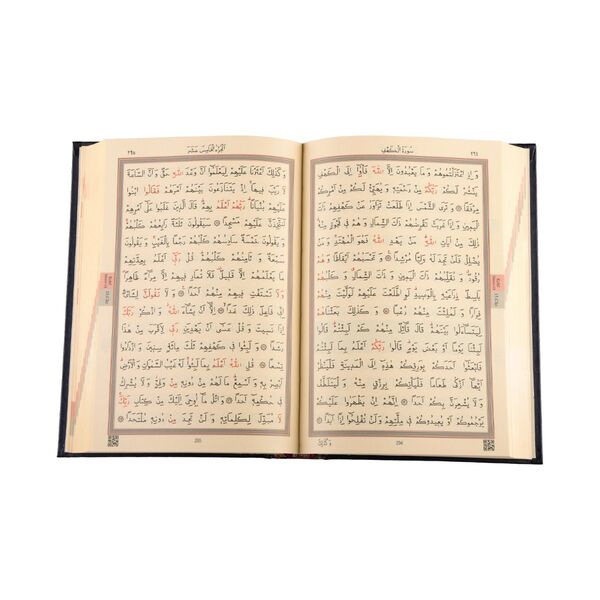 ٢٩٤ سُورَةُ الْكَهْفِ
وَاِذِ اعْتَزَلْتُمُوهُمْ وَمَا يَعْبُدُونَ اِلَّا اللّٰهَ فَأْوُٓا اِلَى الْكَهْفِ
يَنْشُرْ لَكُمْ رَبُّكُمْ مِنْ رَحْمَتِهٖ وَيُهَيِّئْ لَكُمْ مِنْ اَمْرِكُمْ
مِرْفَقًا ۝ وَتَرَى الشَّمْسَ اِذَا طَلَعَتْ تَزَاوَرُ عَنْ كَهْفِهِمْ
ذَاتَ الْيَمٖينِ وَاِذَا غَرَبَتْ تَقْرِضُهُمْ ذَاتَ الشِّمَالِ وَهُمْ فٖي فَجْوَةٍ مِنْهُ
ذٰلِكَ مِنْ اٰيَاتِ اللّٰهِ مَنْ يَهْدِ اللّٰهُ فَهُوَ الْمُهْتَدِ وَمَنْ
يُضْلِلْ فَلَنْ تَجِدَ لَهُ وَلِيًّا مُرْشِدًا ۝ وَتَحْسَبُهُمْ اَيْقَاظًا وَهُمْ
رُقُودٌ وَنُقَلِّبُهُمْ ذَاتَ الْيَمٖينِ وَذَاتَ الشِّمَالِ وَكَلْبُهُمْ
بَاسِطٌ ذِرَاعَيْهِ بِالْوَصٖيدِ لَوِ اطَّلَعْتَ عَلَيْهِمْ لَوَلَّيْتَ مِنْهُمْ
فِرَارًا وَلَمُلِئْتَ مِنْهُمْ رُعْبًا ۝ وَكَذٰلِكَ بَعَثْنَاهُمْ
لِيَتَسَٓاءَلُوا بَيْنَهُمْ قَالَ قَٓائِلٌ مِنْهُمْ كَمْ لَبِثْتُمْ قَالُوا
لَبِثْنَا يَوْمًا اَوْ بَعْضَ يَوْمٍ قَالُوا رَبُّكُمْ اَعْلَمُ بِمَا لَبِثْتُمْ
فَابْعَثُٓوا اَحَدَكُمْ بِوَرِقِكُمْ هٰذِهٖٓ اِلَى الْمَدٖينَةِ فَلْيَنْظُرْ
اَيُّهَٓا اَزْكٰى طَعَامًا فَلْيَأْتِكُمْ بِرِزْقٍ مِنْهُ وَلْيَتَلَطَّفْ
وَلَا يُشْعِرَنَّ بِكُمْ اَحَدًا ۝ اِنَّهُمْ اِنْ يَظْهَرُوا عَلَيْكُمْ
يَرْجُمُوكُمْ اَوْ يُعٖيدُوكُمْ فٖي مِلَّتِهِمْ وَلَنْ تُفْلِحُٓوا اِذًا اَبَدًا
294
اَلْجُزْءُ الْخَامِسَ عَشَرَ ٢٩٥
وَكَذٰلِكَ اَعْثَرْنَا عَلَيْهِمْ لِيَعْلَمُٓوا اَنَّ وَعْدَ اللّٰهِ حَقٌّ وَاَنَّ السَّاعَةَ
لَا رَيْبَ فٖيهَا اِذْ يَتَنَازَعُونَ بَيْنَهُمْ اَمْرَهُمْ فَقَالُوا ابْنُوا
عَلَيْهِمْ بُنْيَانًا رَبُّهُمْ اَعْلَمُ بِهِمْ قَالَ الَّذٖينَ غَلَبُوا عَلٰٓى اَمْرِهِمْ
لَنَتَّخِذَنَّ عَلَيْهِمْ مَسْجِدًا ۝ سَيَقُولُونَ ثَلٰثَةٌ رَابِعُهُمْ كَلْبُهُمْ
وَيَقُولُونَ خَمْسَةٌ سَادِسُهُمْ كَلْبُهُمْ رَجْمًا بِالْغَيْبِ وَيَقُولُونَ
سَبْعَةٌ وَثَامِنُهُمْ كَلْبُهُمْ قُلْ رَبّٖٓي اَعْلَمُ بِعِدَّتِهِمْ
مَا يَعْلَمُهُمْ اِلَّا قَلٖيلٌ فَلَا تُمَارِ فٖيهِمْ اِلَّا مِرَٓاءً ظَاهِرًا
وَلَا تَسْتَفْتِ فٖيهِمْ مِنْهُمْ اَحَدًا ۝ وَلَا تَقُولَنَّ لِشَا۬يْءٍ
اِنّٖي فَاعِلٌ ذٰلِكَ غَدًا ۝ اِلَّٓا اَنْ يَشَٓاءَ اللّٰهُ وَاذْكُرْ رَبَّكَ
اِذَا نَسٖيتَ وَقُلْ عَسٰٓى اَنْ يَهْدِيَنِ رَبّٖي لِاَقْرَبَ مِنْ هٰذَا
رَشَدًا ۝ وَلَبِثُوا فٖي كَهْفِهِمْ ثَلٰثَ مِائَةٍ سِنٖينَ وَازْدَادُوا
تِسْعًا ۝ قُلِ اللّٰهُ اَعْلَمُ بِمَا لَبِثُوا لَهُ غَيْبُ السَّمٰوَاتِ وَالْاَرْضِ
اَبْصِرْ بِهٖ وَاَسْمِعْ مَا لَهُمْ مِنْ دُونِهٖ مِنْ وَلِيٍّ وَلَا يُشْرِكُ
فٖي حُكْمِهٖٓ اَحَدًا ۝ وَاتْلُ مَٓا اُو۫حِيَ اِلَيْكَ مِنْ كِتَابِ رَبِّكَ
لَا مُبَدِّلَ لِكَلِمَاتِهٖ وَلَنْ تَجِدَ مِنْ دُونِهٖ مُلْتَحَدًا
295